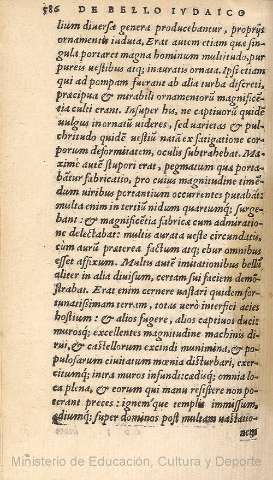 586 DE BELLO IVDAICO
lium diuersæ genera producebantur, proprijs
ornamentis induta. Erat autem etiam quæ sin
gula portaret magna hominum multitudo, pur
pureis uestibus atq; inauratis ornata. Ipsi etiam
qui ad pompam fuerant ab alia turba discreti,
præcipua & mirabili ornamentorũ magnificẽ
tia culti erant. Insuper his, ne captiuorũ quidẽ
uulgus inornatũ uideres, sed uarietas & pul
chritudo quidẽ uestiũ natã ex fatigatione cor
porum deformitatem, oculis subtrahebat. Ma
ximè autẽ stupori erat, pegmatum quæ porta
bãtur fabricatio, pro cuius magnitudine timẽ
dum uiribus portantium occurrentes putabãt:
multa enim in tertiũ nidum quartumq; surge
bant: & magnificẽtia fabricæ cum admiratio
ne delectabat: multis aurata ueste circundatis,
cùm aurũ præterea factum atq; ebur omnibus
esset affixum. Multis autẽ imitationibus bellũ
aliter in alia diuisum, certam sui faciem demõ
strabat. Erat enim cernere uastari quidem for
tunatissimam terram, totas uerò interfici acies
hostium: & alios fugere, alios captiuos duci:
murosq; excellentes magnitudine machinis di
rui, & castellorum excindi munimina, & po
pulosarum ciuitatum mœnia disturbari, exer
citumq; intra muros infundi: cædisq; omnia lo
ca plena, & eorum qui manu resistere non po
terant preces: ignemq; templis immissum,
ædiumq; super dominos post multam uastatio
nem
Ministerio de Educación, Cultura y Deporte